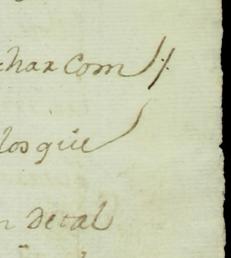 char com //.
los que
n de tal